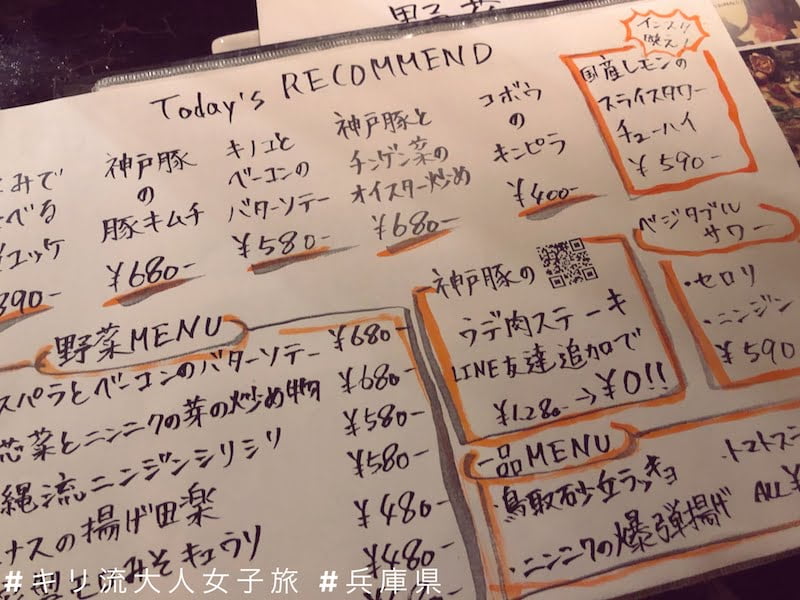 Today's RECOMMEND
インスタ
映え!
国産レモンの
スライスタワー
チューハイ
¥590-
コボウ
の
キンピラ
¥400-
神戸豚と
チンゲン菜の
オイスター炒め
¥680-
キノコと
ベーコンの
バターソテー
¥580-
神戸豚
の
豚キムチ
¥680-
みで
べる
ロッケ
390-
ベジタブル
サワー
・セロリ
・ニンジン
¥590
神戸豚の
ウデ肉ステーキ
LINE友達追加で
¥1.280- → ¥0!!
野菜MENU
スパラとベーコンのバターソテー ¥680-
芯菜とニンニクの芽の炒め物 ¥680-
縄流ニンジンシリシリ ¥580-
ナスの揚げ田楽 ¥580-
みそキュウリ ¥480-
¥480-
一品MENU
・鳥取砂丘ラッキョ
・ニンニクの爆弾揚げ
トマトス
ALL ¥
#キリ流大人女子旅 #兵庫県